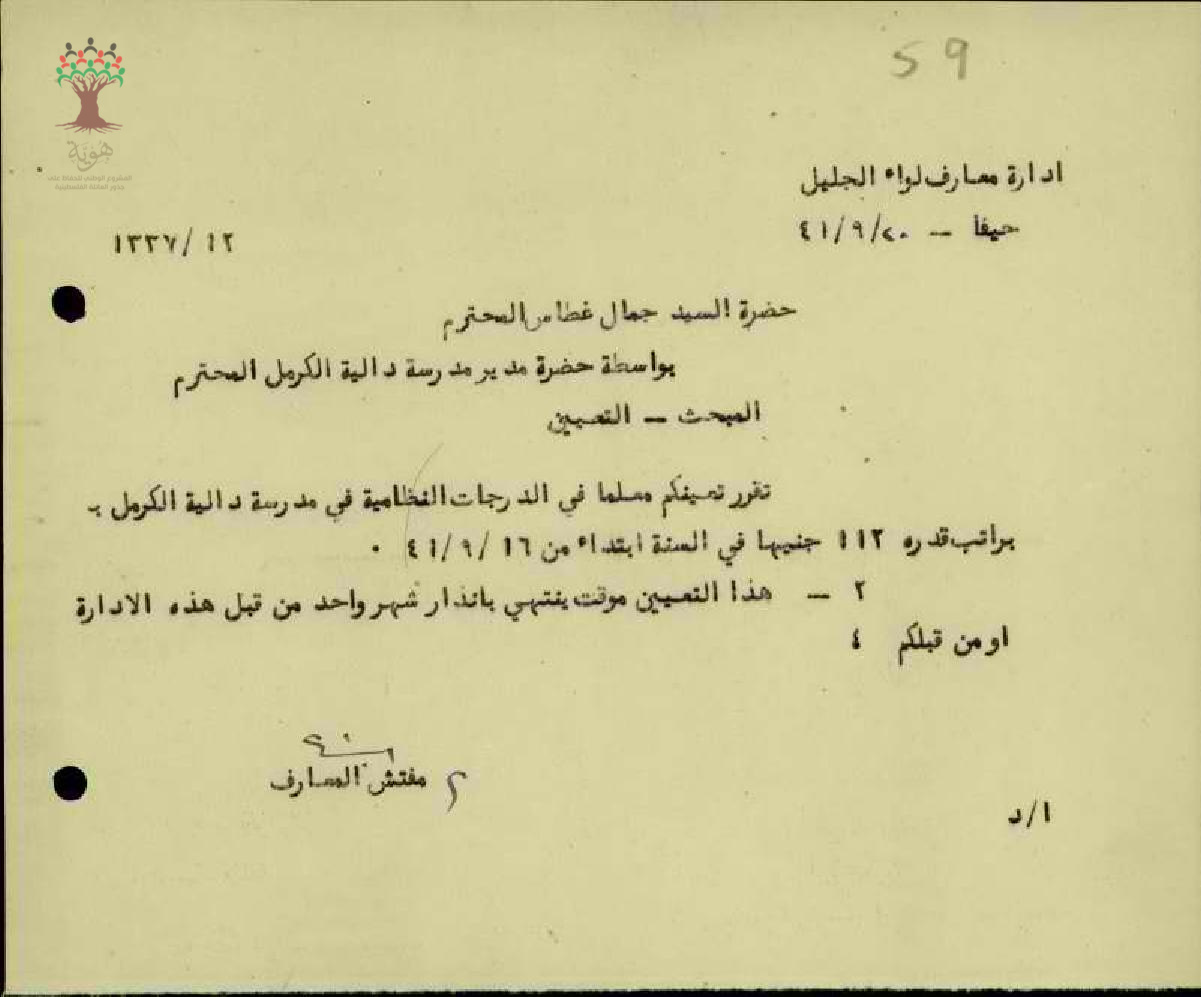 59
هوية
المشروع الوطني للحفاظ على
جذور العائلة الفلسطينية
ادارة معارف لواء الجليل
حيفا – ٤١/٩/٢٠
١٣٣٧/ ١٢
حضرة السيد جمال غطاس المحترم
بواسطة حضرة مدير مدرسة دالية الكرمل المحترم
المبحث – التعيين
تقرر تعيينكم معلما في الدرجات النظامية في مدرسة دالية الكرمل بـ
براتب قدره ١١٢ جنيها في السنة ابتداء من ١٦ /٤١/٩ ٠
٢ – هذا التعيين موقت ينتهي بانذار شهر واحد من قبل هذه الادارة
او من قبلكم ٤
مفتش المعارف
ا/د